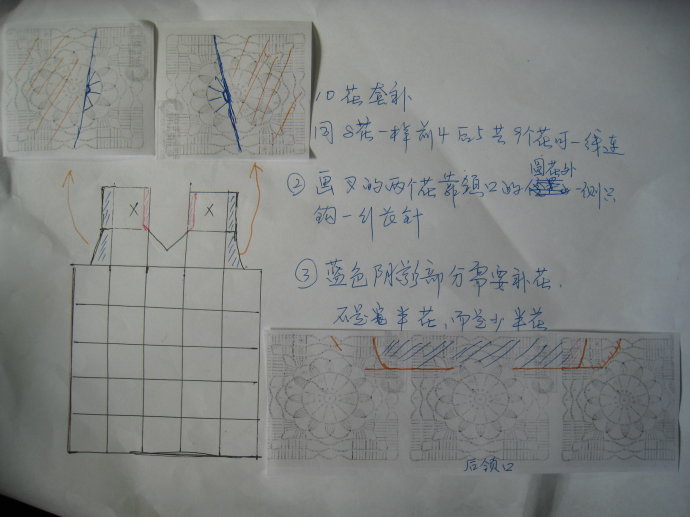 10花套补
同8花一样前4后5共9个花可一线连
② 画叉的两个花靠领口的一侧只
圆花外
钩一引长针
③ 蓝色阴影部分需要补花.
不是半花,而是少半花
X X
后领口